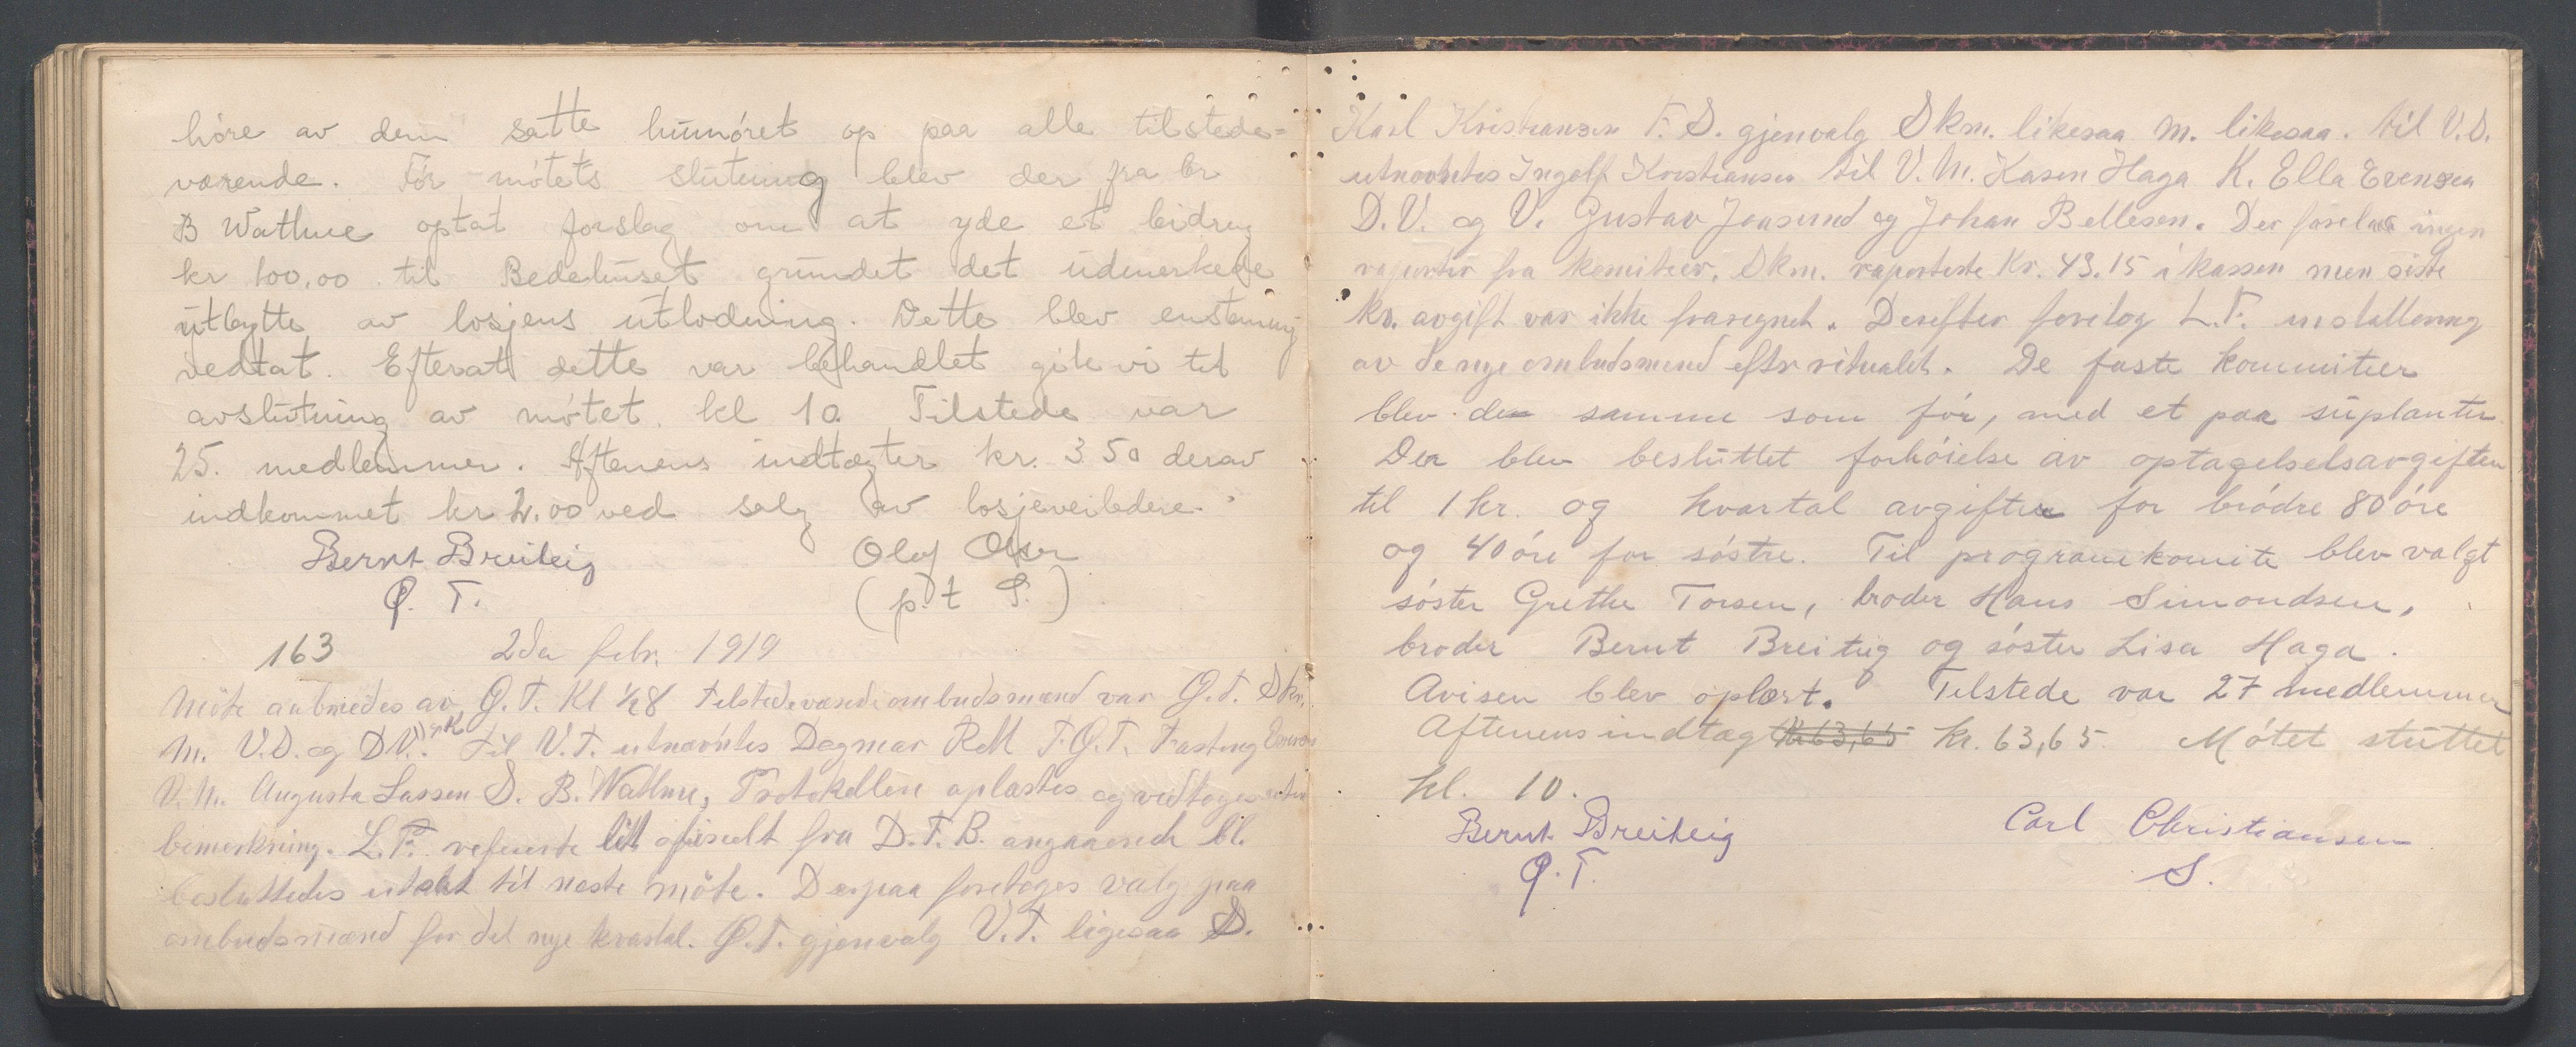 höre av dem satte humöret op paa alle tilstede=
værende. För mötets slutning blev der fra br
B Wathne optat forslag om at yde et bidrag
kr 100,00 til Bedehuset grundet det udmerkede
utbytte av losjens utlodning. Dette blev enstemig
vedtat. Efterat dette var behandlet gik vi til
avslutning av mötet kl 10. Tilstede var
25. medlemmer. Aftenens indtægter kr. 3 50 derav
indkommet kr 2.00 ved salg av losjeveiledere.
Bernt Breiteig Olaf
Q. T. (p.t S.)
163 2den febr. 1919
Möte aabnedes av Q.T. Kl ½8 tilstedeværende ombudsmænd var Q.T. Skm.
M. V.D. og D.V. og K til V.T. utnævntes Dagmar F.Q.T.
V.M. Augusta Lassen S. B. Wathne, Protokollen oplæstes og vedtoges uten
bemerkning. L.T. refererte litt ofisielt fra D.T.B. angaaende bl.
besluttedes utsat til næste möte. Derpaa foretoges valg paa
ombudsmænd for det nye kvartal. Q.T. gjenvalg V.T. ligesaa S.
Karl Kristiansen F.S. gjenvalg Skm. likesaa M. likesaa. til V.S.
utnævntes Ingolf Kristiansen til V.M. Karen Haga K. Ella Evensen
D.V. og V. Gustav Jonsund og Johan Bellesen. Der forelaa ingen
raporter fra komiteer. Skm. raporterte Kr. 43.15 i kassen men siste
kv. avgift var ikke fraregnet. Derefter foretog L.T. installering
av de nye ombudsmænd efter ritualet. De faste kommiteer
blev de samme som för, med et par suplanter.
Der blev besluttet forhöielse av optagelselsavgiften
til 1 kr. og kvartal avgiften for brödre 80 öre
og 40 öre for söstre. Til programkomite blev valgt
söster Grethe Torsen, broder Hans Simondsen,
broder Bernt Breiteig og söster Lisa Haga.
Avisen blev oplæst. Tilstede var 27 medlemmer
Aftenens indtægt kr 63,65 kr. 63,65. Mötet sluttet
kl. 10.
Bernt Breiteig Carl Christiansen
Q.T. S.